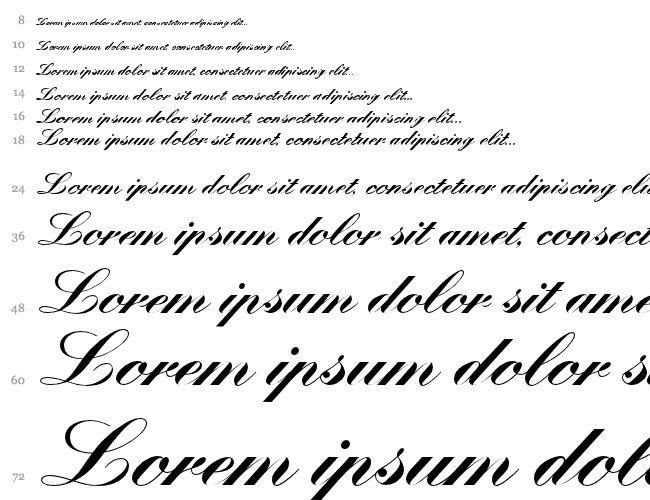 8 Lorem ipsum dolor sit amet, consectetuer adipiscing elit...
10 Lorem ipsum dolor sit amet, consectetuer adipiscing elit...
12 Lorem ipsum dolor sit amet, consectetuer adipiscing elit...
14 Lorem ipsum dolor sit amet, consectetuer adipiscing elit...
16 Lorem ipsum dolor sit amet, consectetuer adipiscing elit...
18 Lorem ipsum dolor sit amet, consectetuer adipiscing elit...
24 Lorem ipsum dolor sit amet, consectetuer adipiscing eli
36 Lorem ipsum dolor sit amet, consect
48 Lorem ipsum dolor sit ame
60 Lorem ipsum dolor s
72 Lorem ipsum dol